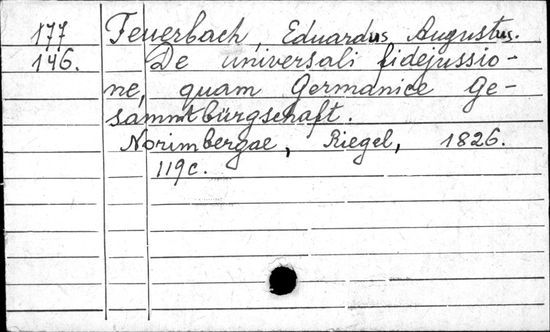 177 Feuerbach, Eduardus Augustus.
146. De universali fidejussio-
ne, quam Germanice Ge-
sammtbürgschaft.
Norimbergae, Riegel, 1826.
119c.